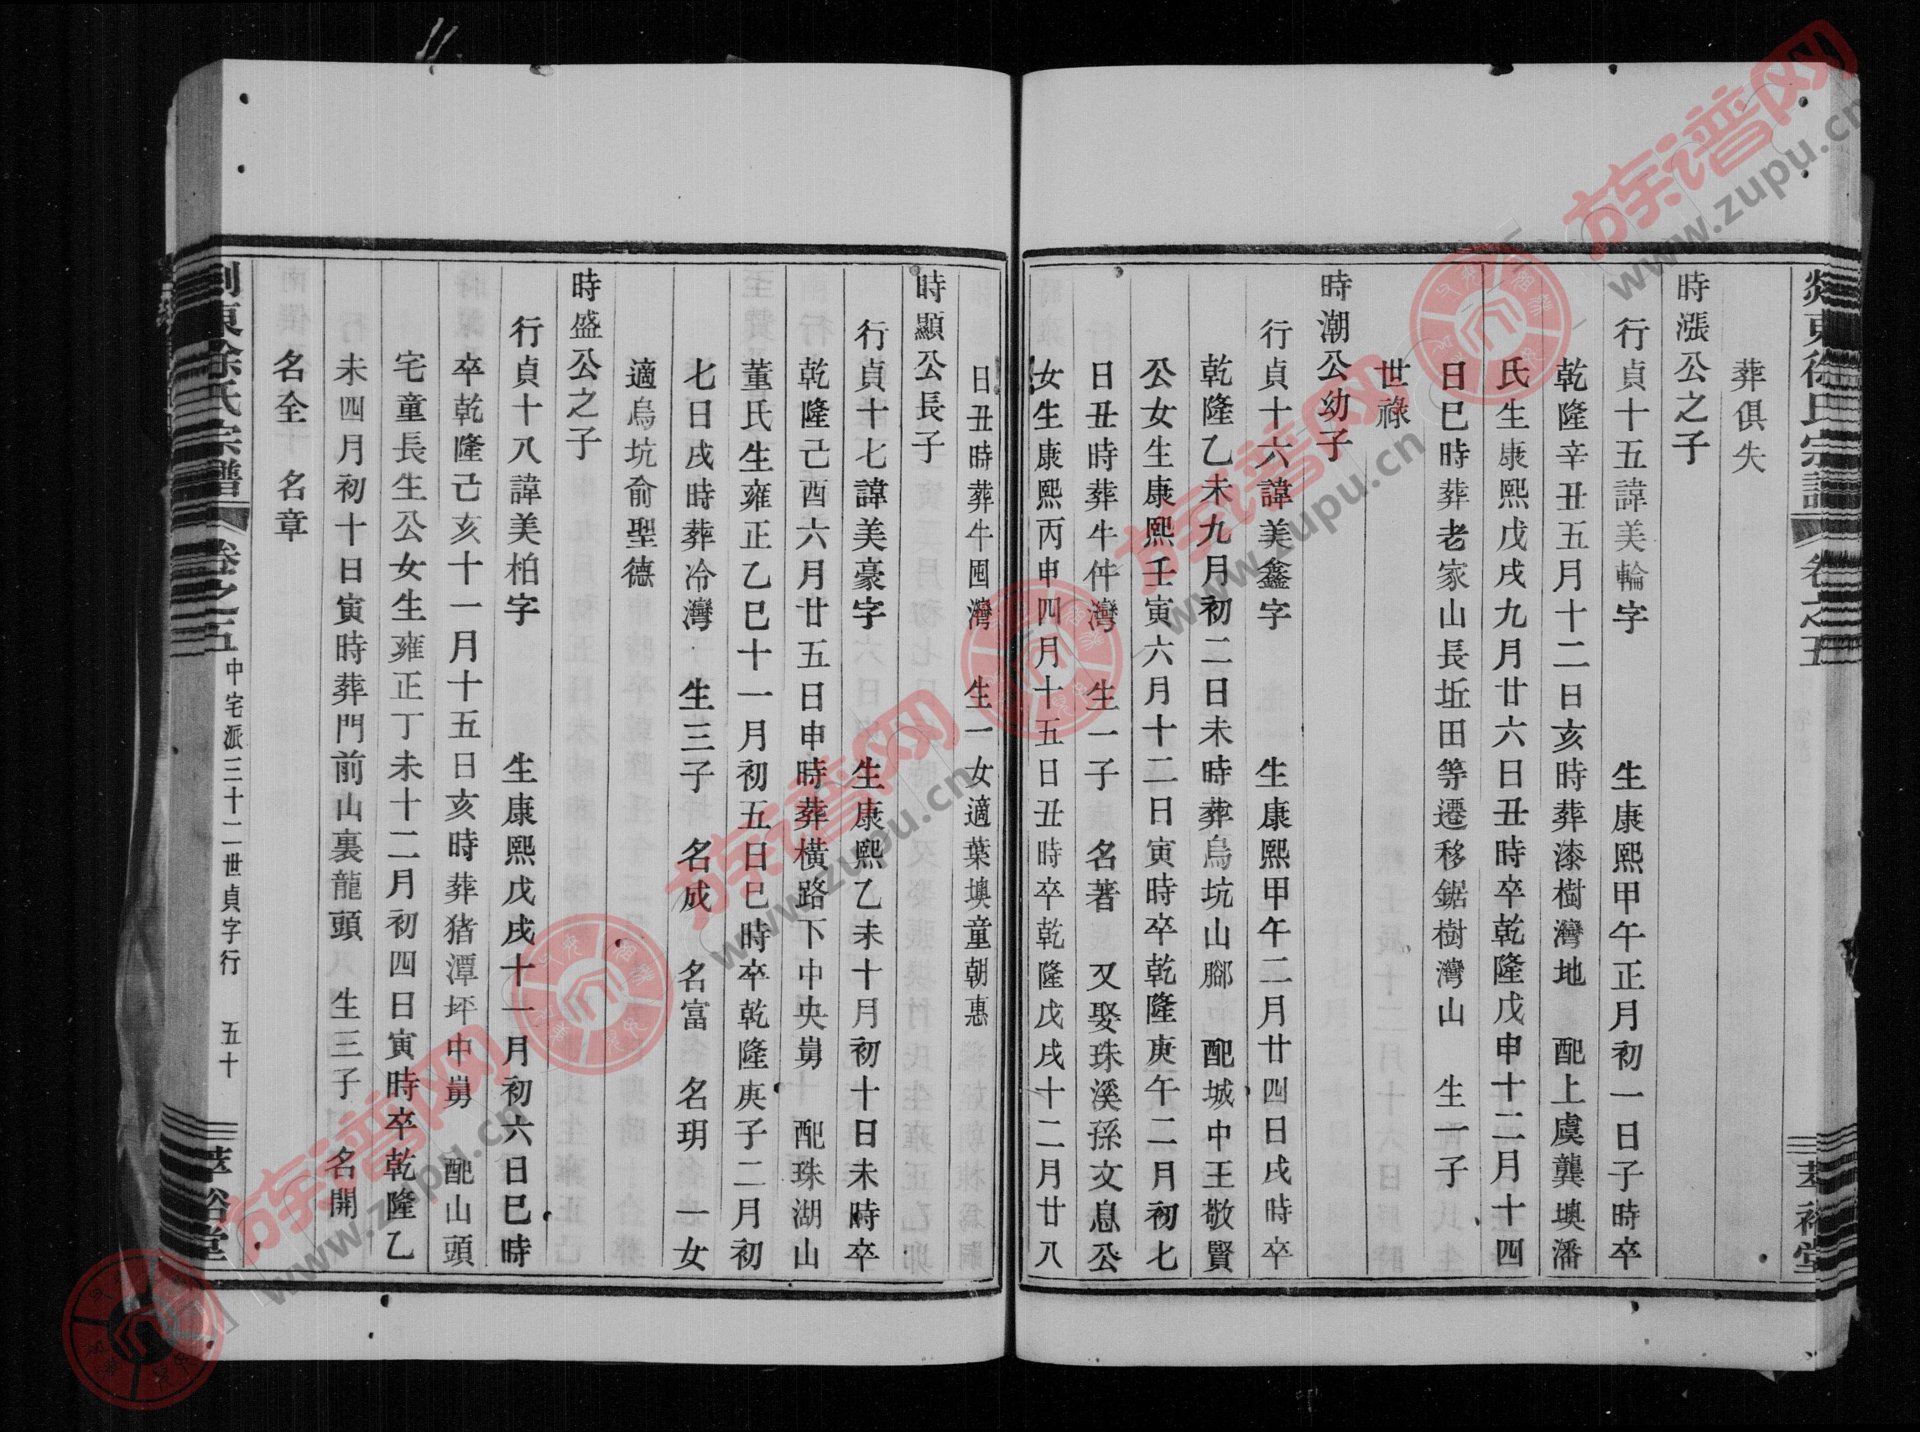 葬俱失
時漲公之子
行貞十五諱美輪字 生康熙甲午正月初一日子時卒
乾隆辛丑五月十二日亥時葬漆樹灣地 配上虞龔墺潘
氏生康熙戊戌九月廿六日丑時卒乾隆戊申十二月十四
日巳時葬老家山長坵田等遷移鋸樹灣山 生一子
世祿
時潮公幼子
行貞十六諱美鑫字 生康熙甲午二月廿四日戌時卒
乾隆乙未九月初二日未時葬烏坑山腳 配城中王敬賢
公女生康熙壬寅六月十二日寅時卒乾隆庚午二月初七
日丑時葬牛仵灣 生一子 名著 又娶珠溪孫文息公
女生康熙丙申四月十五日丑時卒乾隆戊戌十二月廿八
日丑時葬牛囤灣 生一女適葉墺童朝惠
時顯公長子
行貞十七諱美豪字 生康熙乙未十月初十日未時卒
乾隆己酉六月廿五日申時葬橫路下中央舅 配珠湖山
董氏生雍正乙巳十一月初五日巳時卒乾隆庚子二月初
七日戌時葬冷灣 生三子 名成 名富 名玥 一女
適烏坑俞聖德
時盛公之子
行貞十八諱美柏字 生康熙戊戌十一月初六日巳時
卒乾隆己亥十一月十五日亥時葬豬潭坪中舅 配山頭
宅童長生公女生雍正丁未十二月初四日寅時卒乾隆乙
未四月初十日寅時葬門前山裏龍頭 生三子 名開
名全 名章
剡東徐氏宗譜 卷之五 中宅派三十二世貞字行 五十 萃裕堂
剡東徐氏宗譜 卷之五 萃裕堂
族谱网 www.zupu.cn
族谱网 www.zupu.cn
族谱网 www.zupu.cn
族谱网 www.zupu.cn